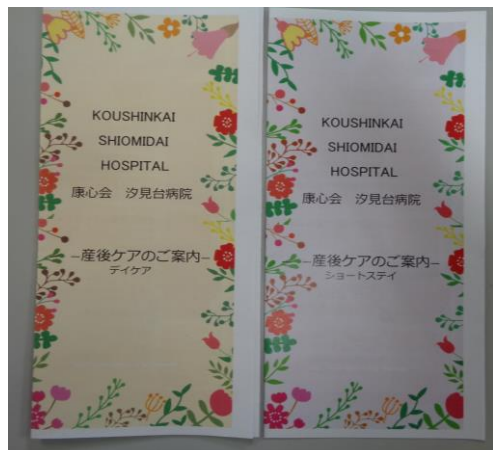 KOUSHINKAI
SHIOMIDAI
HOSPITAL
康心会 汐見台病院
―産後ケアのご案内―
デイケア
KOUSHINKAI
SHIOMIDAI
HOSPITAL
康心会 汐見台病院
―産後ケアのご案内―
ショートステイ